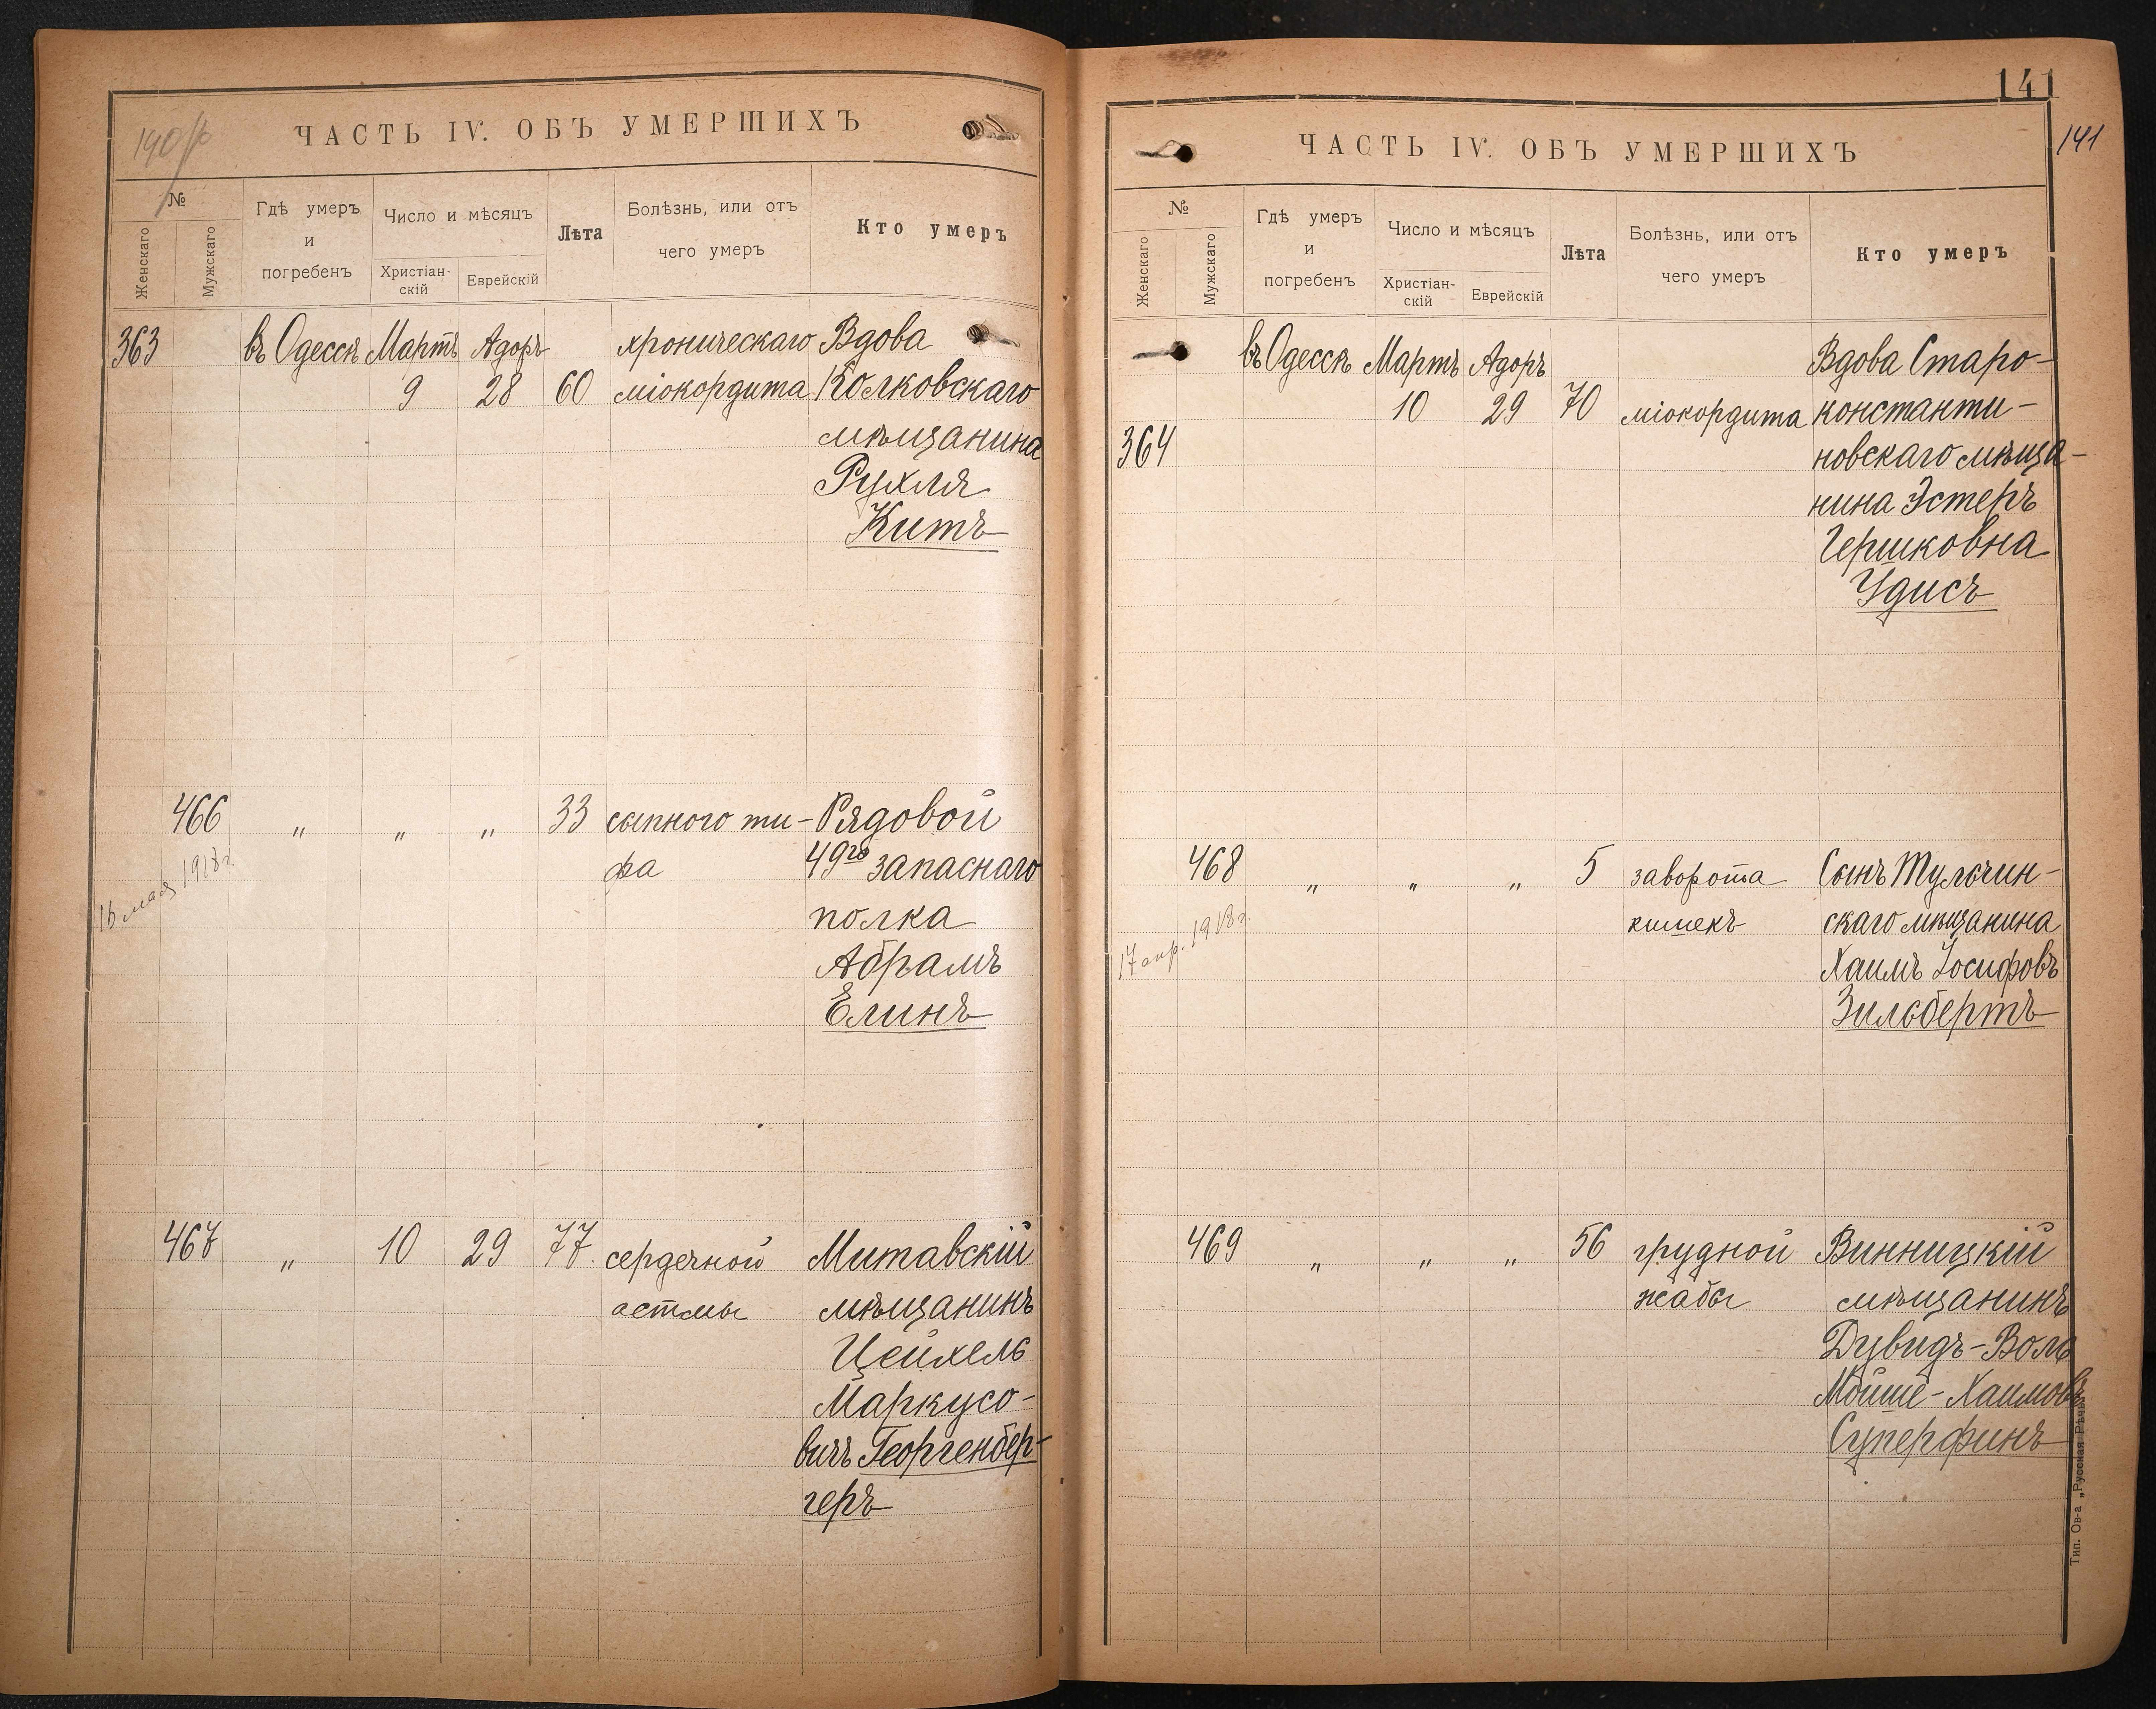 190 об
ЧАСТЬ IV. ОБЪ УМЕРШИХЪ
№
Женскаго
Мужскаго
Гдѣ умеръ
и
погребенъ
Число и мѣсяцъ
Христіан-
скій
Еврейскій
Лѣта
Болѣзнь, или отъ
чего умеръ
Кто умеръ
363 въ Одессѣ Мартъ Адоръ хроническаго Вдова
9 28 60 міокордита Колковскаго
мѣщанина
Рухля
Китъ
466 " " " 33 сыпного ти- Рядовой
фа 49го запаснаго
16 мая 1918г.
полка
Абрамъ
Елинъ
467 " 10 29 77. сердечной Митавскій
астмы мѣщанинъ
Цейхель
Маркусо-
вичъ Георгенбер-
геръ
141
141
ЧАСТЬ IV. ОБЪ УМЕРШИХЪ
№
Женскаго
Мужскаго
Гдѣ умеръ
и
погребенъ
Число и мѣсяцъ
Христіан-
скій
Еврейскій
Лѣта
Болѣзнь, или отъ
чего умеръ
Кто умеръ
въ Одессѣ Мартъ Адоръ Вдова Старо-
10 29 70 міокордита константи-
364 новскаго мѣща-
нина Эстеръ
Гершковна
Удисъ
468 " " " 5 заворота Сынъ Тульчин-
кишекъ скаго мѣщанина
17 апр. 1918г.
Хаимъ Іосифовъ
Зильбертъ
469 " " " 56 грудной Винницкій
жабы мѣщанинъ
Дувидъ-Воль
Мойше-Хаимовъ
Суперфинъ
Тип. Ов-а „Русская Рѣчь"